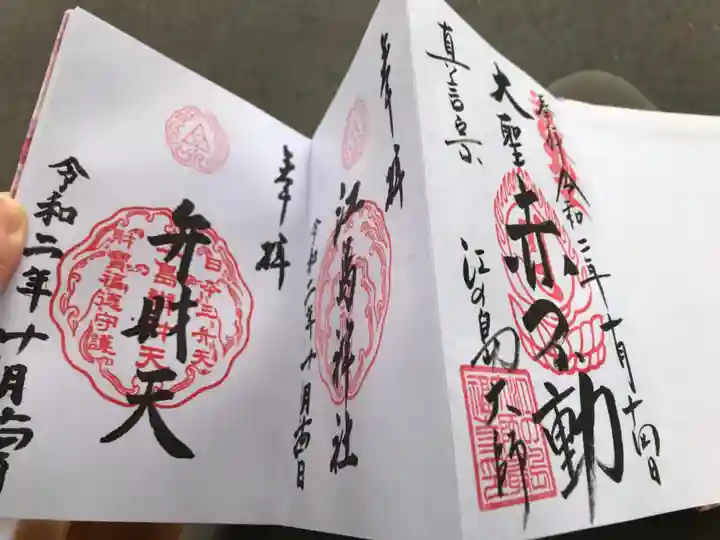 奉拝 令和二年十月十四日
大聖赤不動
江の島大師
真言宗
奉拝
江島神社
令和二年十月十四日
奉拝
弁財天
令和二年十月十四日
日本三弁天
江島弁財天
財寶福徳守護